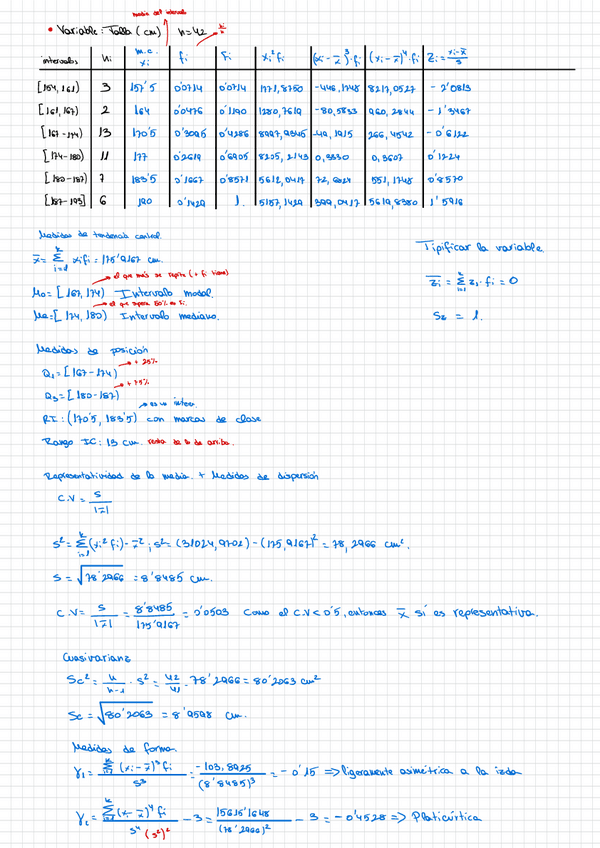 media del intervalo
• Variable: Talla (cm) n=42 ni/n
intervalos ni m.c. xi fi Fi xi² fi (xi - x̄)³·fi (xi - x̄)⁴·fi Zi = xi-x̄/s
[154, 161) 3 157'5 0'0714 0'0714 1771,8750 -446,1748 8217,0527 -2'0813
[161, 167) 2 164 0'0476 0'1190 1280,7619 -80,5833 960,2844 -1'3467
[167-174) 13 170'5 0'3095 0'4286 8997,9345 -49,1915 266,4542 -0'6122
[174-180) 11 177 0'2619 0'6905 8205,2143 0,3330 0,3607 0'1224
[180-187) 7 183'5 0'1667 0'8571 5612,0417 72,6824 551,1748 0'8570
[187-193] 6 190 0'1429 1. 5157,1429 399,0417 5619,8380 1'5916
Medidas de tendencia central.
x̄ = Σ xi fi = 175'9167 cm.
el que más se repite (+ fi tiene)
Mo = [167, 174) Intervalo modal.
el que supera 50% en Fi.
Me = [174, 180) Intervalo mediano.
Tipificar la variable.
z̄i = Σ zi · fi = 0
Sz = 1.
Medidas de posición
Q1 = [167-174) + 25%
Q3 = [180-187) + 75%
es un interv.
RI: (170'5, 183'5) con marcas de clase
Rango IC: 13 cm. resta de lo de arriba.
Representatividad de la media. + Medidas de dispersión
C.V = s/|x̄|
s² = Σ(xi² fi) - x̄²; s² = (31024,9702) - (175,9167)² = 78,2966 cm².
s = √78'2966 = 8'8485 cm.
C.V = s/|x̄| = 8'8485/175'9167 = 0'0503 Como el C.V < 0'5, entonces x̄ sí es representativa.
Cuasivarianz
Sc² = n/n-1 · s² = 42/41 · 78'2966 = 80'2063 cm²
Sc = √80'2063 = 8'9598 cm.
Medidas de forma.
γ1 = Σ(xi-x̄)³ fi/s³ = -103,8925/(8'8485)³ = -0'15 ⇒ ligeramente asimétrica a la izda
γ2 = Σ(xi-x̄)⁴ fi/s⁴ (s²)² - 3 = 15615'1648/(78'2966)² - 3 = -0'4528 ⇒ Platicúrtica